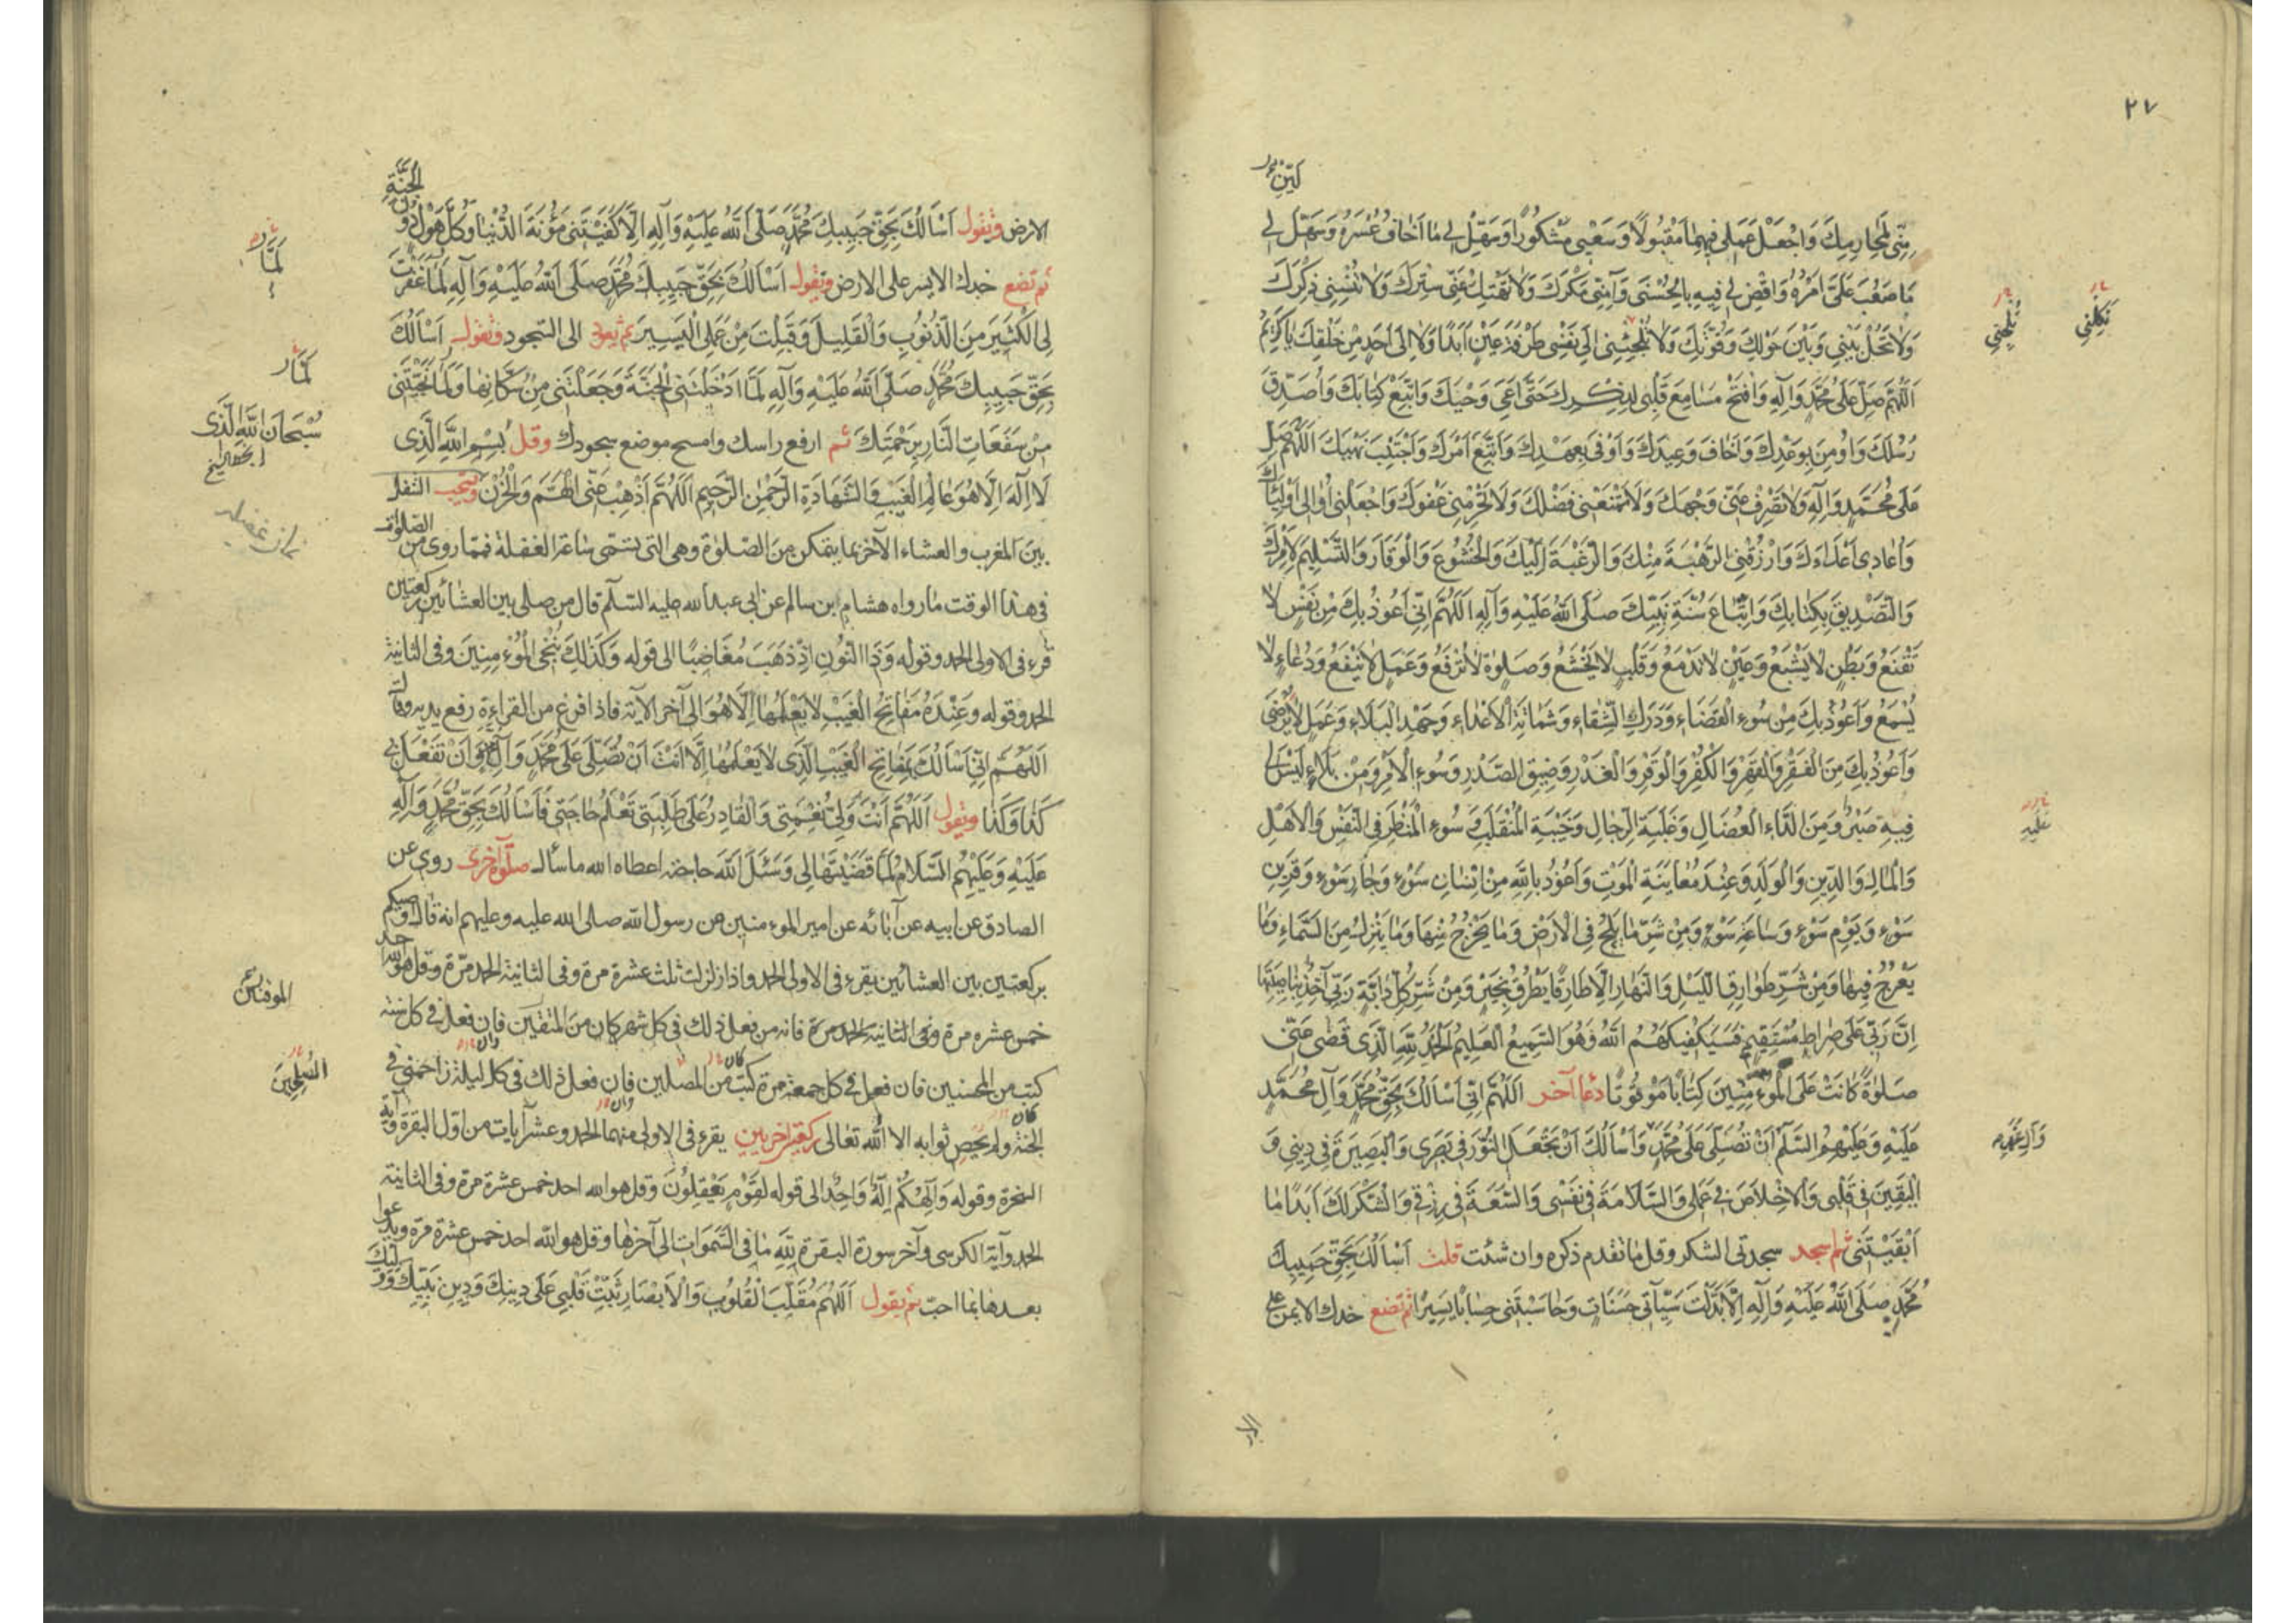 ٢٧
لَيِّنْ
مِنِّي لِمَحَارِمِكَ وَاجْعَلْ عَمَلِي فِيهِمَا مَقْبُولًا وَسَعْيِي مَشْكُورًا وَسَهِّلْ لِي مَا أَخَافُ عُسْرَهُ وَسَهِّلْ لِي
مَا صَعُبَ عَلَيَّ أَمْرُهُ وَاقْضِ لِي فِيهِ بِالْحُسْنَى وَآمِنِّي مَكْرَكَ وَلَا تَهْتِكْ عَنِّي سِتْرَكَ وَلَا تُنْسِنِي ذِكْرَكَ
وَلَا تَحُلْ بَيْنِي وَبَيْنَ حَوْلِكَ وَقُوَّتِكَ وَلَا تُلْجِئْنِي إِلَى نَفْسِي طَرْفَةَ عَيْنٍ أَبَدًا وَلَا إِلَى أَحَدٍ مِنْ خَلْقِكَ يَا كَرِيمُ
اَللَّهُمَّ صَلِّ عَلَى مُحَمَّدٍ وَآلِهِ وَافْتَحْ مَسَامِعَ قَلْبِي لِذِكْرِكَ حَتَّى أَعِيَ وَحْيَكَ وَأَتَّبِعَ كِتَابَكَ وَأُصَدِّقَ
رُسُلَكَ وَأُومِنَ بِوَعْدِكَ وَأَخَافَ وَعِيدَكَ وَأُوفِيَ بِعَهْدِكَ وَأَتَّبِعَ أَمْرَكَ وَأَجْتَنِبَ نَهْيَكَ اَللَّهُمَّ صَلِّ
عَلَى مُحَمَّدٍ وَآلِهِ وَلَا تَصْرِفْ عَنِّي وَجْهَكَ وَلَا تَمْنَعْنِي فَضْلَكَ وَلَا تَحْرِمْنِي عَفْوَكَ وَاجْعَلْنِي أُوَالِي أَوْلِيَاءَكَ
وَأُعَادِي أَعْدَاءَكَ وَارْزُقْنِي الرَّهْبَةَ مِنْكَ وَالرَّغْبَةَ إِلَيْكَ وَالْخُشُوعَ وَالْوَقَارَ وَالتَّسْلِيمَ لِأَمْرِكَ
وَالتَّصْدِيقَ بِكِتَابِكَ وَاتِّبَاعَ سُنَّةِ نَبِيِّكَ صَلَّى اللَّهُ عَلَيْهِ وَآلِهِ اَللَّهُمَّ إِنِّي أَعُوذُ بِكَ مِنْ نَفْسٍ لَا
تَقْنَعُ وَبَطْنٍ لَا يَشْبَعُ وَعَيْنٍ لَا تَدْمَعُ وَقَلْبٍ لَا يَخْشَعُ وَصَلٰوةٍ لَا تُرْفَعُ وَعَمَلٍ لَا يَنْفَعُ وَدُعَاءٍ لَا
يُسْمَعُ وَأَعُوذُ بِكَ مِنْ سُوءِ الْقَضَاءِ وَدَرَكِ الشَّقَاءِ وَشَمَاتَةِ الْأَعْدَاءِ وَجَهْدِ الْبَلَاءِ وَعَمَلٍ لَا يُرْضَى
وَأَعُوذُ بِكَ مِنَ الْفَقْرِ وَالْقَهْرِ وَالْكُفْرِ وَالْوَقْرِ وَالْغَدْرِ وَضِيقِ الصَّدْرِ وَسُوءِ الْأَمْرِ وَمِنْ بَلَاءٍ لَيْسَ لِي
فِيهِ صَبْرٌ وَمِنَ الدَّاءِ الْعُضَالِ وَغَلَبَةِ الرِّجَالِ وَخَيْبَةِ الْمُنْقَلَبِ وَسُوءِ الْمَنْظَرِ فِي النَّفْسِ وَالْأَهْلِ
وَالْمَالِ وَالدِّينِ وَالْوَلَدِ وَعِنْدَ مُعَايَنَةِ الْمَوْتِ وَأَعُوذُ بِاللَّهِ مِنْ إِنْسَانِ سَوْءٍ وَجَارِ سَوْءٍ وَقَرِينِ
سَوْءٍ وَيَوْمِ سَوْءٍ وَسَاعَةِ سَوْءٍ وَمِنْ شَرِّ مَا يَلِجُ فِي الْأَرْضِ وَمَا يَخْرُجُ مِنْهَا وَمَا يَنْزِلُ مِنَ السَّمَاءِ وَمَا
يَعْرُجُ فِيهَا وَمِنْ شَرِّ طَوَارِقِ اللَّيْلِ وَالنَّهَارِ إِلَّا طَارِقًا يَطْرُقُ بِخَيْرٍ وَمِنْ شَرِّ كُلِّ دَابَّةٍ رَبِّي آخِذٌ بِنَاصِيَتِهَا
إِنَّ رَبِّي عَلَى صِرَاطٍ مُسْتَقِيمٍ فَسَيَكْفِيكَهُمُ اللَّهُ وَهُوَ السَّمِيعُ الْعَلِيمُ الْحَمْدُ لِلَّهِ الَّذِي قَضَى عَنِّي
صَلٰوةً كَانَتْ عَلَى الْمُؤْمِنِينَ كِتَابًا مَوْقُوتًا دعاء آخر اَللَّهُمَّ إِنِّي أَسْأَلُكَ بِحَقِّ مُحَمَّدٍ وَآلِ مُحَمَّدٍ
عَلَيْهِ وَعَلَيْهِمُ السَّلَمُ أَنْ تُصَلِّيَ عَلَى مُحَمَّدٍ وَأَسْأَلُكَ أَنْ تَجْعَلَ النُّورَ فِي بَصَرِي وَالْبَصِيرَةَ فِي دِينِي وَ
الْيَقِينَ فِي قَلْبِي وَالْإِخْلَاصَ فِي عَمَلِي وَالسَّلَامَةَ فِي نَفْسِي وَالسَّعَةَ فِي رِزْقِي وَالشُّكْرَ لَكَ أَبَدًا مَا
أَبْقَيْتَنِي ثم اسجد سجدتى الشكر وقل ما تقدم ذكره وان شئت قلت أَسْأَلُكَ بِحَقِّ حَبِيبِكَ
مُحَمَّدٍ صَلَّى اللَّهُ عَلَيْهِ وَآلِهِ إِلَّا بَدَّلْتَ سَيِّئَاتِي حَسَنَاتٍ وَحَاسَبْتَنِي حِسَابًا يَسِيرًا ثم تضع خدك الايمن على
تَكِلْنِي
تُلْجِنِي
غَلَبَةِ
وَآلِ مُحَمَّدٍ
الارض وتقول أَسْأَلُكَ بِحَقِّ حَبِيبِكَ مُحَمَّدٍ صَلَّى اللَّهُ عَلَيْهِ وَآلِهِ إِلَّا كَفَيْتَنِي مَؤُنَةَ الدُّنْيَا وَكُلَّ هَوْلٍ دُونَ الْجَنَّةِ
ثم تضع خدك الايسر على الارض وتقول أَسْأَلُكَ بِحَقِّ حَبِيبِكَ مُحَمَّدٍ صَلَّى اللَّهُ عَلَيْهِ وَآلِهِ لَمَّا غَفَرْتَ
لِيَ الْكَثِيرَ مِنَ الذُّنُوبِ وَالْقَلِيلَ وَقَبِلْتَ مِنْ عَمَلِيَ الْيَسِيرَ ثم تعود الى السجود وتقول أَسْأَلُكَ
بِحَقِّ حَبِيبِكَ مُحَمَّدٍ صَلَّى اللَّهُ عَلَيْهِ وَآلِهِ لَمَّا أَدْخَلْتَنِي الْجَنَّةَ وَجَعَلْتَنِي مِنْ سُكَّانِهَا وَلَمَّا نَجَّيْتَنِي
مِنْ سَفَعَاتِ النَّارِ بِرَحْمَتِكَ ثم ارفع راسك وامسح موضع سجودك وقل بِسْمِ اللَّهِ الَّذِي
لَا إِلَهَ إِلَّا هُوَ عَالِمُ الْغَيْبِ وَالشَّهَادَةِ الرَّحْمٰنُ الرَّحِيمُ اَللَّهُمَّ أَذْهِبْ عَنِّي الْهَمَّ وَالْحُزْنَ ويستحب التنفل
بين المغرب والعشاء الآخرة بما يتمكن من الصلوة وهى التى تسمى ساعة الغفلة فمما روى من الصلوات
فى هذا الوقت ما رواه هشام بن سالم عن ابى عبد الله عليه السلم قال من صلى بين العشائين ركعتين
قرء فى الاولى الحمد وقوله وَذَا النُّونِ إِذْ ذَهَبَ مُغَاضِبًا الى قوله وَكَذَلِكَ نُنْجِي الْمُؤْمِنِينَ وفى الثانية
الحمد وقوله وَعِنْدَهُ مَفَاتِحُ الْغَيْبِ لَا يَعْلَمُهَا إِلَّا هُوَ الى آخر الآية فاذا فرغ من القراءة رفع يديه وقال
اَللَّهُمَّ إِنِّي أَسْأَلُكَ بِمَفَاتِحِ الْغَيْبِ الَّذِي لَا يَعْلَمُهَا إِلَّا أَنْتَ أَنْ تُصَلِّيَ عَلَى مُحَمَّدٍ وَآلِهِ وَأَنْ تَفْعَلَ بِي
كَذَا وَكَذَا وتقول اَللَّهُمَّ أَنْتَ وَلِيُّ نِعْمَتِي وَالْقَادِرُ عَلَى طَلِبَتِي تَعْلَمُ حَاجَتِي فَأَسْأَلُكَ بِحَقِّ مُحَمَّدٍ وَآلِهِ
عَلَيْهِ وَعَلَيْهِمُ السَّلَامُ لَمَّا قَضَيْتَهَا لِي وَسَئَلَ اللَّهَ حاجته اعطاه الله ما سأل صلوة اخرى روى عن
الصادق عن ابيه عن آبائه عن امير المؤمنين عن رسول الله صلى الله عليه وعليهم انه قال اوصيكم
بركعتين بين العشائين يقرء فى الاولى الحمد واذا زلزلت ثلث عشرة مرة وفى الثانية الحمد مرة وقل هو الله احد
خمس عشره مرة وفى الثانية الحمد مرة فانه من فعل ذلك فى كل شهر كان من المتقين فان فعل فى كل سنة
كتب من المحسنين فان فعل فى كل جمعة مرة كتب من المصلين فان فعل ذلك فى كل ليلة زاحمنى فى
الجنة ولم يحص ثوابه الا الله تعالى ركعتين اخريين يقرء فى الاولى منهما الحمد وعشر آيات من اول البقرة وآية
السخرة وقوله وَإِلَهُكُمْ إِلَهٌ وَاحِدٌ الى قوله لِقَوْمٍ يَعْقِلُونَ وقل هو الله احد خمس عشرة مرة وفى الثانية
الحمد وآية الكرسى وآخر سورة البقرة لِلَّهِ مَا فِي السَّمَوَاتِ الى آخرها وقل هو الله احد خمس عشرة مرة ويدعوا
بعدها بما احب ثم يقول اَللَّهُمَّ مُقَلِّبَ الْقُلُوبِ وَالْأَبْصَارِ ثَبِّتْ قَلْبِي عَلَى دِينِكَ وَدِينِ نَبِيِّكَ وَوَلِيِّكَ
لَمَّا
لَمَّا
سُبْحَانَ اللَّهِ الَّذِي
نماز غفيله
الموقنين
المصلحين